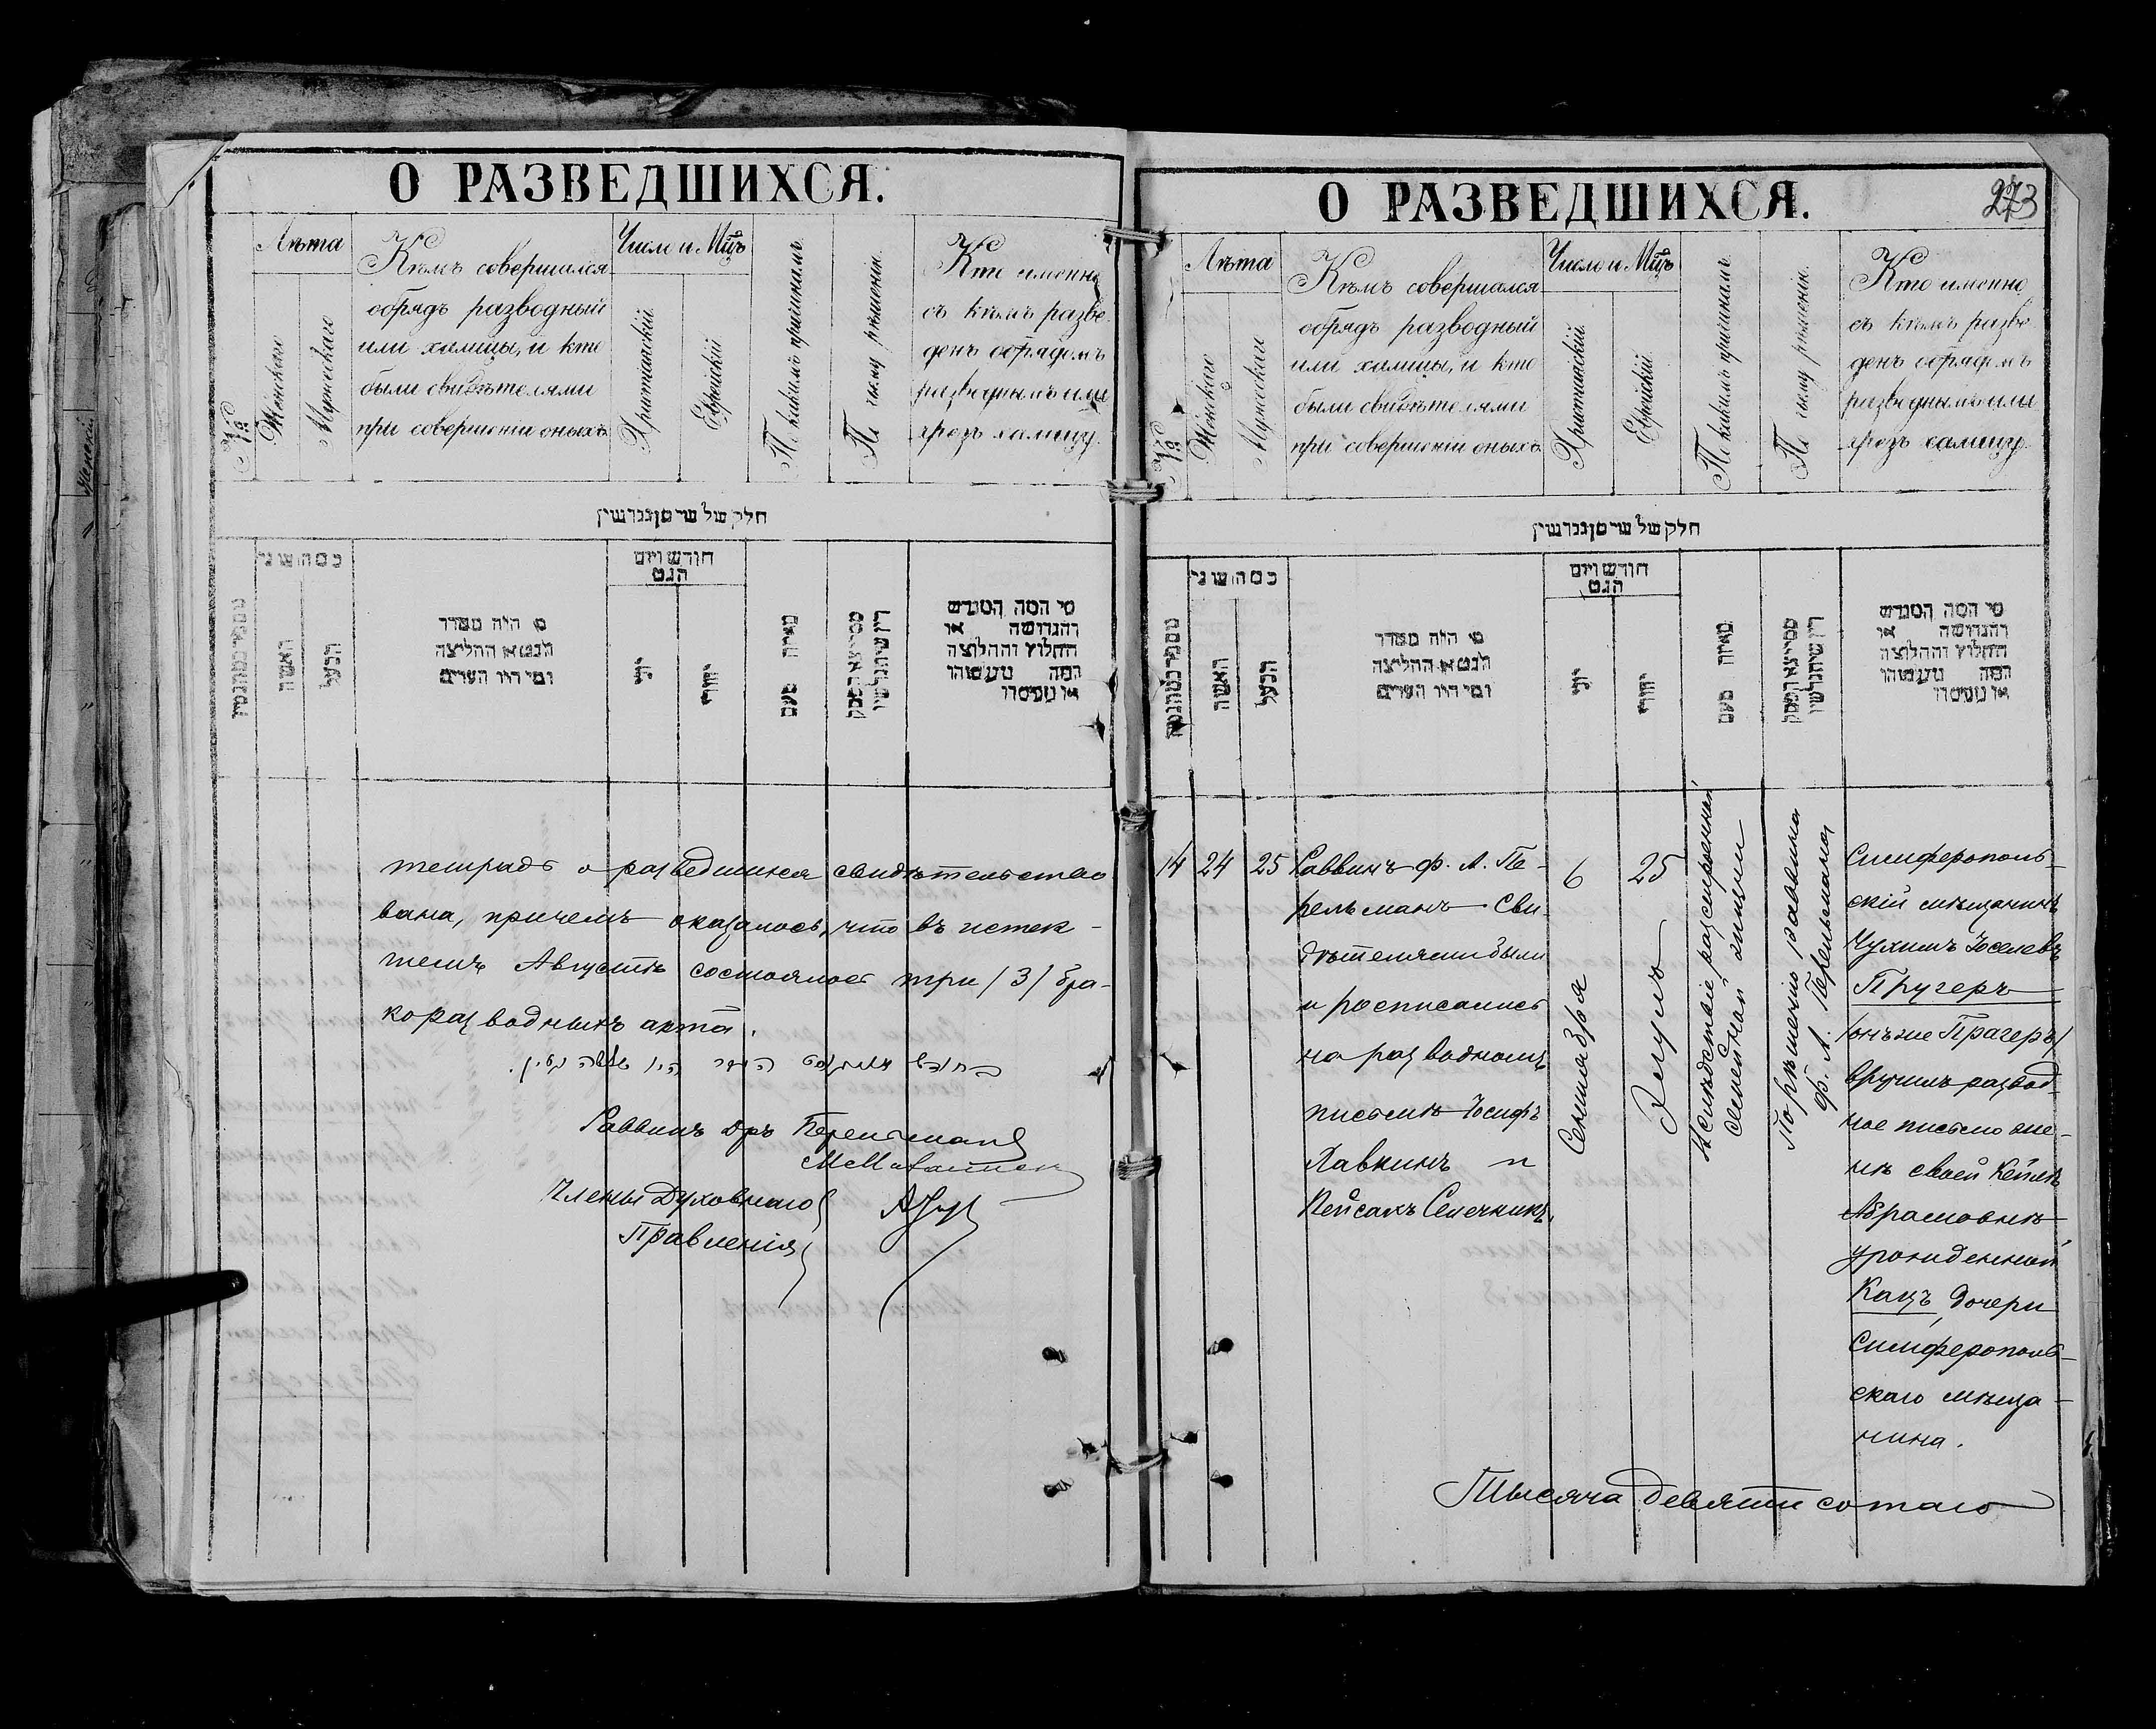 О РАЗВЕДШИХСЯ.
№
Лѣта
Женскаго
Мужескаго
Кѣмъ совершался
обрядъ разводный
или халицы, и кто
были свидѣтелями
при совершеніи оныхъ
Число и Мцъ
Христіанскій
Еврейскій
По какимъ причинамъ
По чьему рѣшенію.
Кто именно
съ кѣмъ разве
денъ обрядомъ
разводнымъ или
чрезъ халицу.
חלק של שרסן גנרושין
כמה שני
האשה
הבעל
מי היה מסדר
הגט או החליצה
ומי היו העדים
חודש ויום
הגט
יוני
יהודי
מאיזה טעם
מי המה המגרש
והגרושה או
החלוץ והחלוצה
המה
тетрадь о разведшихся свидѣтельство
вана, причемъ оказалось, что въ истек-
шемъ Августѣ состоялось три /3/ бра-
коразводныхъ акта.
Раввинъ Дръ Перельманъ
Члены Духовнаго
Правленія
О РАЗВЕДШИХСЯ.
273
№
Лѣта
Женскаго
Мужескаго
Кѣмъ совершался
обрядъ разводный
или халицы, и кто
были свидѣтелями
при совершеніи оныхъ.
Число и Мцъ
Христіанскій
Еврейскій
По какимъ причинамъ
По чьему рѣшенію.
Кто именно
съ кѣмъ разве
денъ обрядомъ
разводнымъ или
чрезъ халицу.
חלק של שרסן גנרושין
כמה שני
האשה
הבעל
מי היה מסדר
הגט או החליצה
ומי היו העדים
חודש ויום
הגט
יוני
יהודי
מאיזה טעם
מי המה המגרש
והגרושה או
החלוץ והחלוצה
המה
14
24
25
Раввинъ Ф. А. Пе-
рельманъ Сви-
дѣтелями были
и росписались
на разводномъ
письмѣ Іосифъ
Хавкинъ и
Пейсахъ Семечникъ.
6
Сентября
25
Элулъ
Вслѣдствіе разстроенной
семейной жизни
По рѣшенію раввина
Ф. А. Перельмана
Симферополь-
скій мѣщанинъ
Нухимъ Іоселевъ
Пругеръ
/онъ же Прагеръ/
вручилъ развод-
ное письмо же-
нѣ своей Кейлѣ
Абрамовнѣ
урожденной
Кацъ, дочери
Симферополь-
скаго мѣща-
нина.
Тысяча девятисотаго